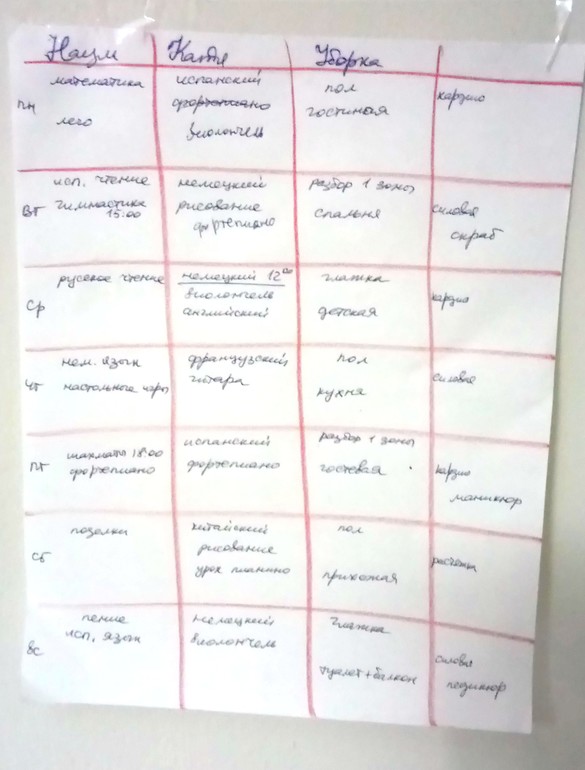 Наум Катя Уборка
математика испанский пол кардио
пн фортепиано гостиная
лего виолончель
исп. чтение немецкий разбор 1 зоны силовая
вт гимнастика рисование спальня скраб
15:00 фортепиано
русское чтение немецкий 12 00 глажка кардио
ср виолончель детская
английский
нем. язык французский пол силовая
чт настольные игры гитара кухня
шахматы 18:00 испанский разбор 1 зоны кардио
пт фортепиано фортепиано гостевая маникюр
поделки китайский пол растяжка
сб рисование прихожая
урок пианино
пение немецкий глажка силовая
вс исп. язык виолончель туалет+балкон педикюр